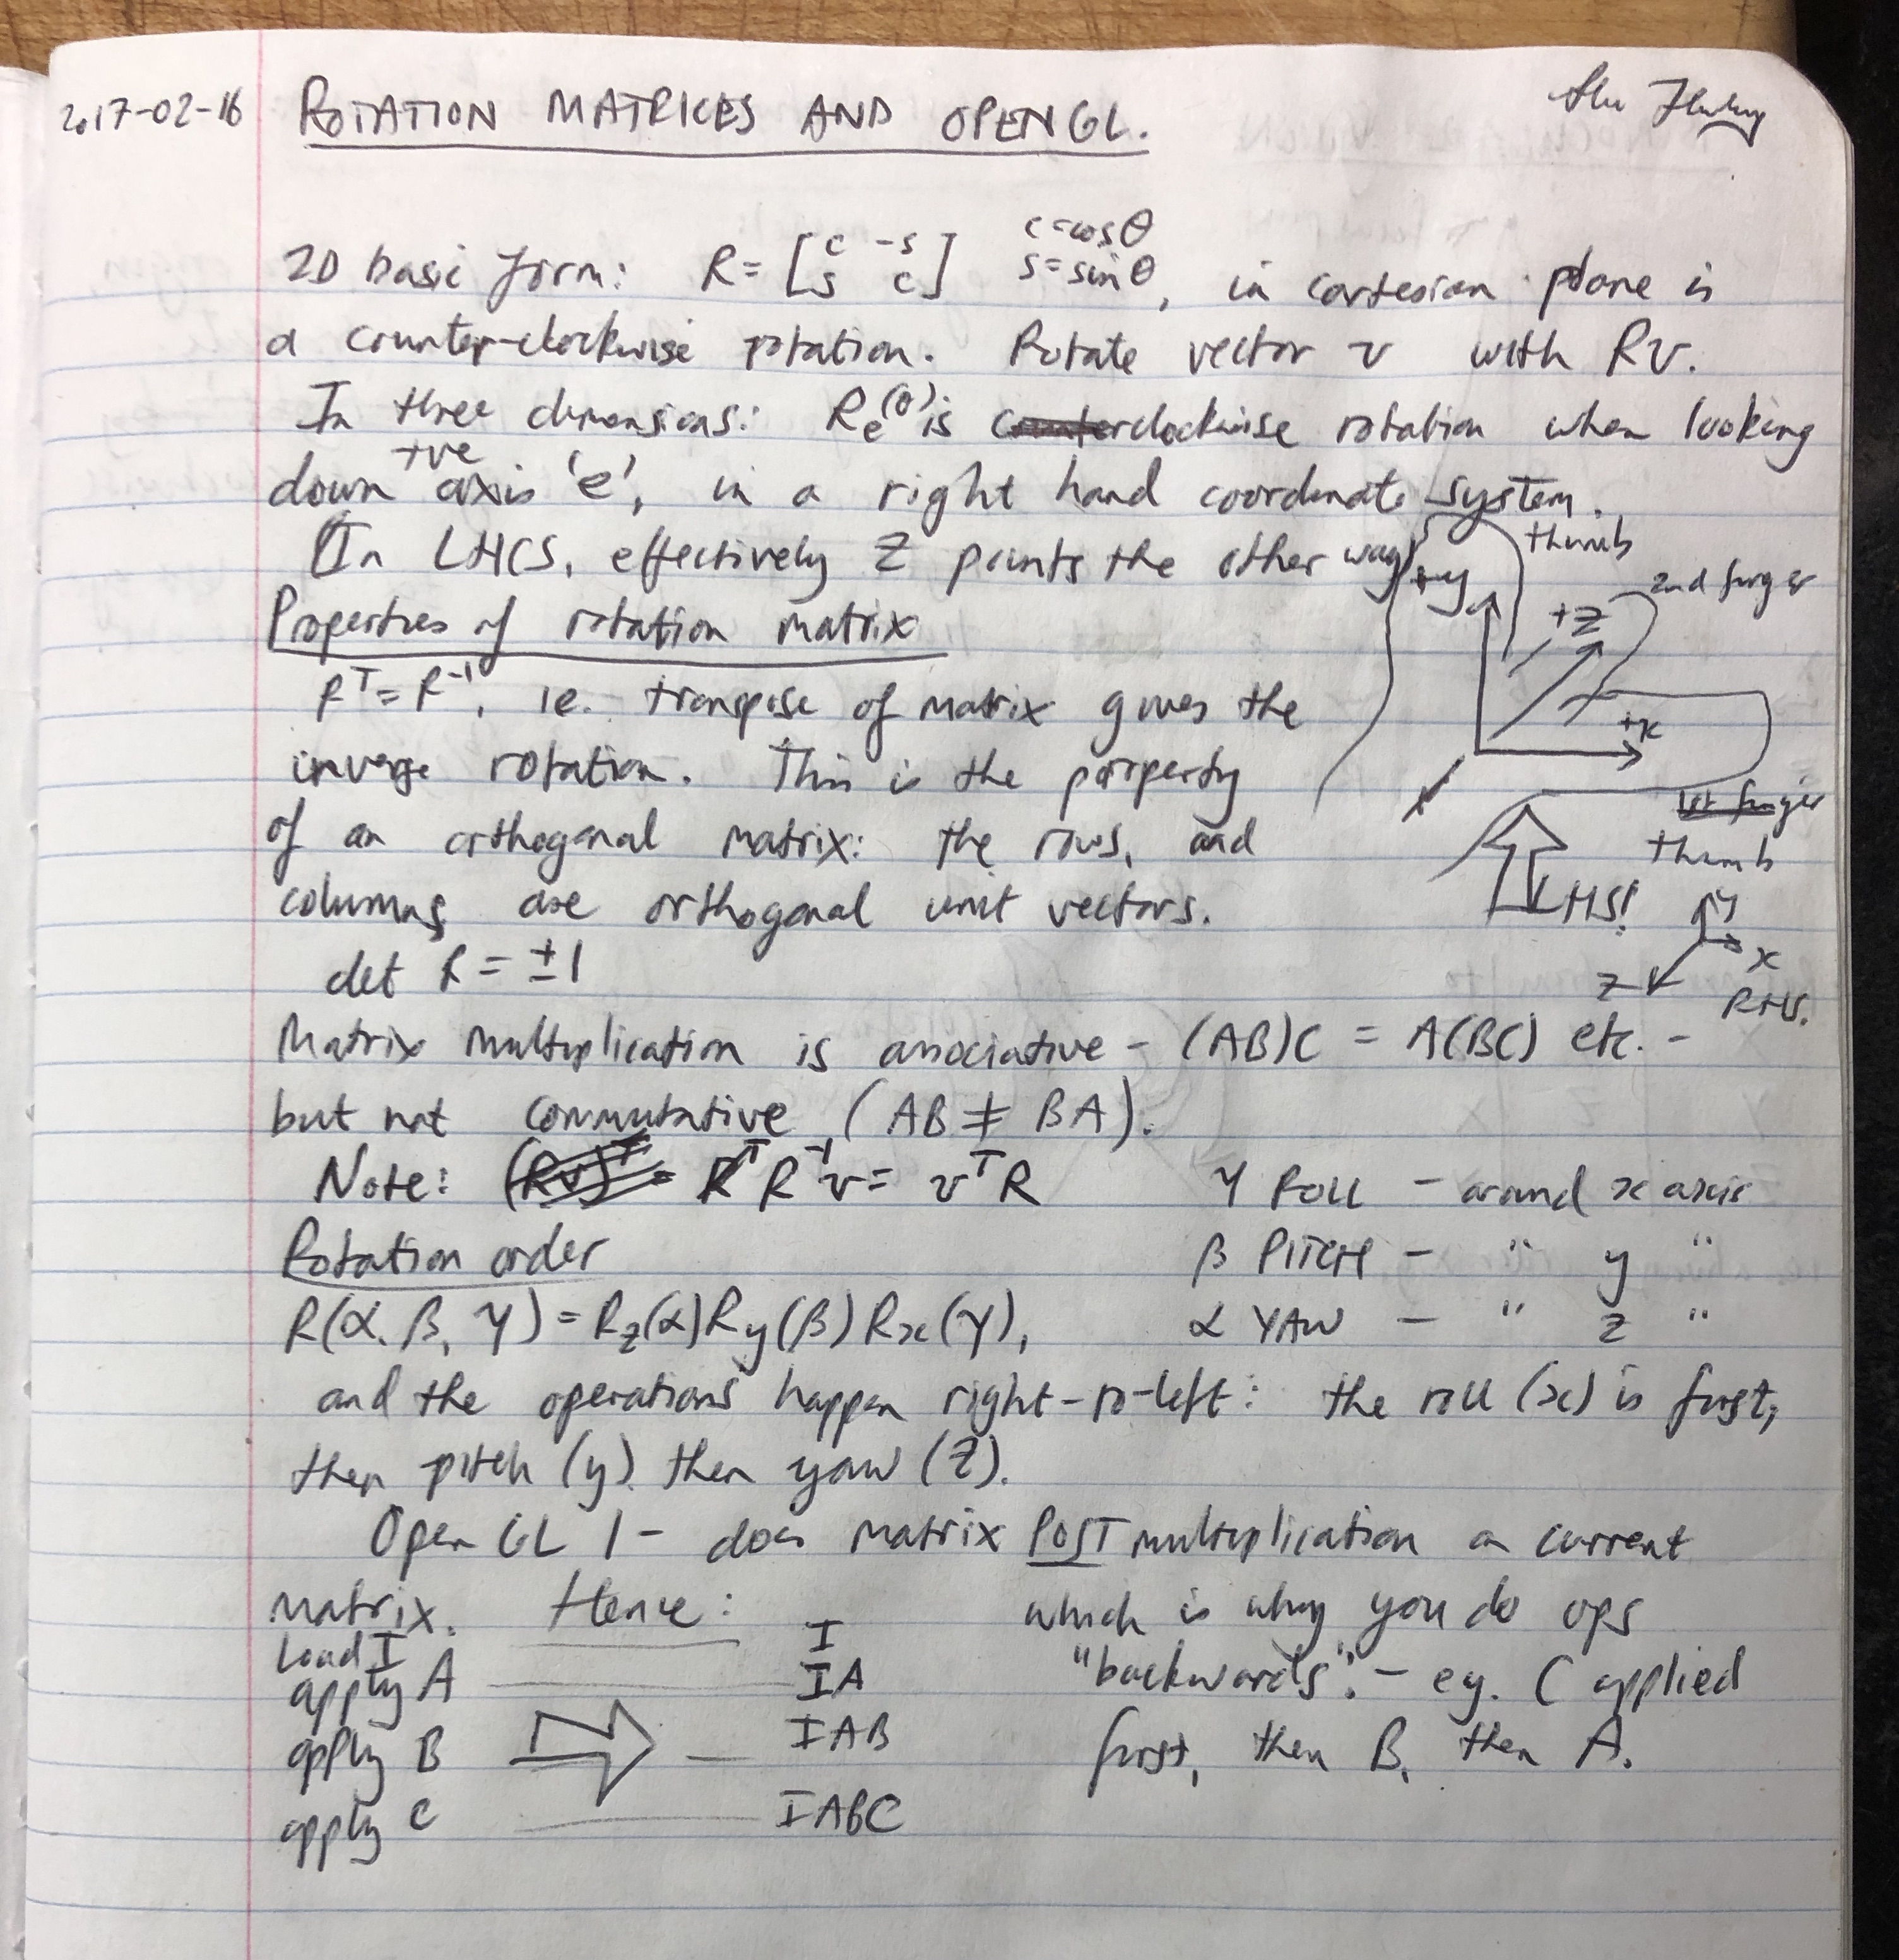 2017-02-16 ROTATION MATRICES AND OPENGL.
2D basic form: R = [c -s
s c] c=cosθ
s=sinθ, in cartesian plane is
a counter-clockwise rotation. Rotate vector v with Rv.
In three dimensions: Re(θ) is counterclockwise rotation when looking
down +ve axis 'e', in a right hand coordinate system.
(In LHCS, effectively Z points the other way)
thumb
2nd finger
+y
+z
+x
1st finger
thumb
LHS!
y
x
z
RHS.
Properties of rotation matrix
R^T = R^-1, ie. transpose of matrix gives the
inverse rotation. This is the property
of an orthogonal matrix: the rows, and
columns are orthogonal unit vectors.
det R = ±1
Matrix multiplication is associative - (AB)C = A(BC) etc. -
but not commutative (AB ≠ BA).
Note: (Rv)^T = R^-1 v = v^T R
γ ROLL - around x axis
β PITCH - " y "
α YAW - " z "
Rotation order
R(α, β, γ) = Rz(α)Ry(β)Rx(γ),
and the operations happen right-to-left: the roll (x) is first,
then pitch (y) then yaw (z).
OpenGL 1 - does matrix POST multiplication on current
matrix. Hence: which is why you do ops
load I I
apply A IA "backwords". - eg. C applied
apply B IAB first, then B, then A.
apply C IABC